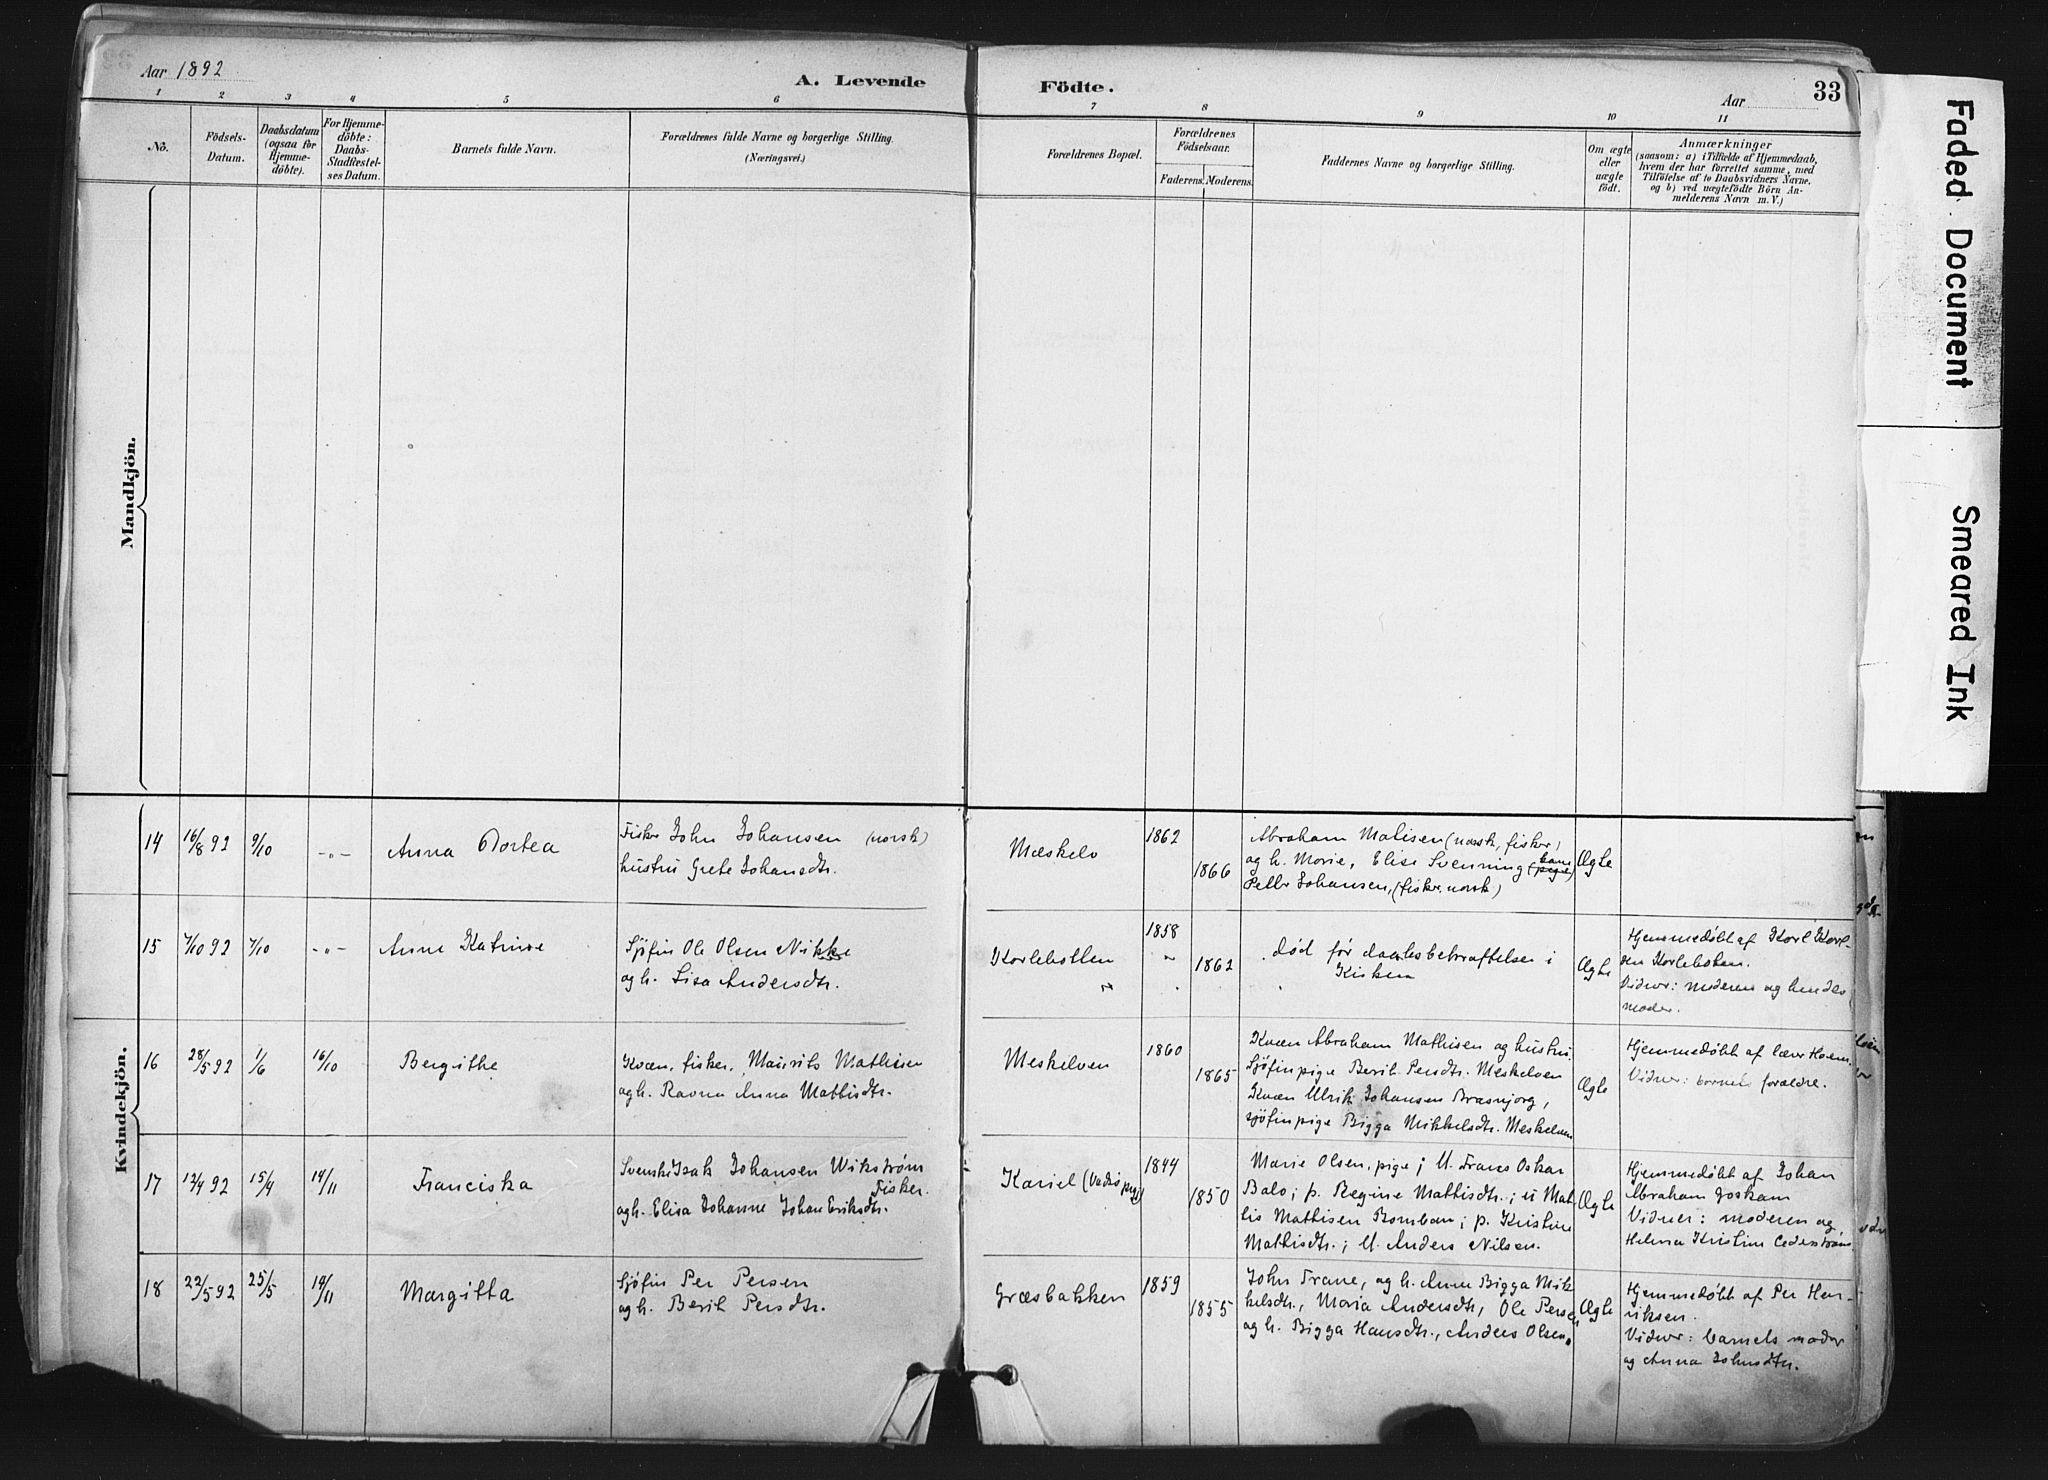 Aar 1892
A. Levende Födte.
Aar
33
1 2 3 4 5 6 7 8 9 10 11
No.
Födsels-Datum.
Daabsdatum (ogsaa for Hjemme-döbte).
For Hjemme-döbte: Daabs-Stadfæstel-ses Datum.
Barnets fulde Navn.
Forældrenes fulde Navne og borgerlige Stilling.
(Næringsvei.)
Forældrenes Bopæl.
Forældrenes Födselsaar.
Faderens. Moderens.
Faddernes Navne og borgerlige Stilling.
Om ægte eller uægte födt.
Anmærkninger
(saasom: a) i Tilfælde af Hjemmedaab,
hvem der har forrettet samme, med
Tilföielse af to Daabsvidners Navne,
og b) ved uægtefödte Börn An-
melderens Navn m. V.)
Mandkjön.
Kvindekjön.
14 16/8 92 9/10 -"- Anna Dortea
Fisker John Johansen (norsk)
hustru Grete Johansdtr.
Mæskelv
1862
1866
Abraham Matisen (norsk, fisker)
og h. Marie, Elise Svenning (pige)
Petter Johansen, (fisker, norsk)
Ægte
15 7/10 92 7/10 -"- Anne Katrine
Sjöfin Ole Olsen Nikke
og h. Lisa Andersdtr.
Karlebotten
1858
1862
död før daabsbekræftelsen i
Kirken
Ægte
Hjemmedøbt af Karl Karl-
sen Karlebotten.
Vidner: moderen og hendes
moder.
16 28/5 92 1/6 16/10 Bergithe
Kvæn, fisker, Maurits Mathisen
og h. Ravna Anna Mattisdtr.
Meskelven
1860
1865
Kvæn Abraham Mathisen og hustru.
Sjöfinpige Berit Persdtr. Meskelven
Kvæn Ulrik Johansen Brasnjorg,
sjöfinpige Bigga Mikkelsdtr. Meskelven
Ægte
Hjemmedøbt af lærer
Vidner: barnets forældre.
17 12/4 92 15/4 14/11 Franciska
Svenske Isak Johansen Wikström
Fisker.
og h. Elisa Johanne Johan Eriksdtr.
Kariel
1844
1850
Marie Olsen, pige; U. Frans Oskar
Balo; p. Regine Mattisdtr.; U Mat-
tis Mathisen Bomban; p. Kristine
Mathisdtr.; U. Anders Nilsen.
Ægte
Hjemmedøbt af Johan
Abraham Joskam
Vidner: moderen og
Helena Kristine Cederstrøm.
18 22/5 92 25/5 14/11 Margitta
Sjöfin Per Persen
og h. Berit Persdtr.
Græsbakken
1859
1855
John Trane, og h. Anne Bigga Mik-
kelsdtr., Maria Andersdtr., Ole Persen
og h. Bigga Hansdtr., Anders Olsen.
Ægte
Hjemmedøbt af Per Hen-
riksen.
Vidner: barnets moder
og Anna Johnsdtr.
Faded Document
Smeared Ink